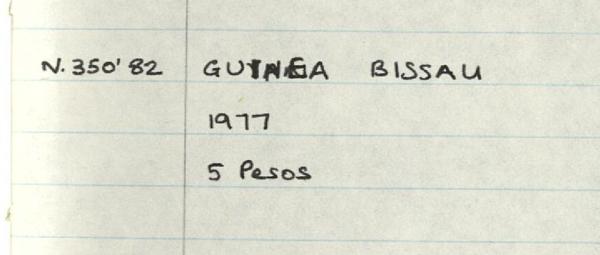 N. 350'82 GUINEA BISSAU
1977
5 Pesos